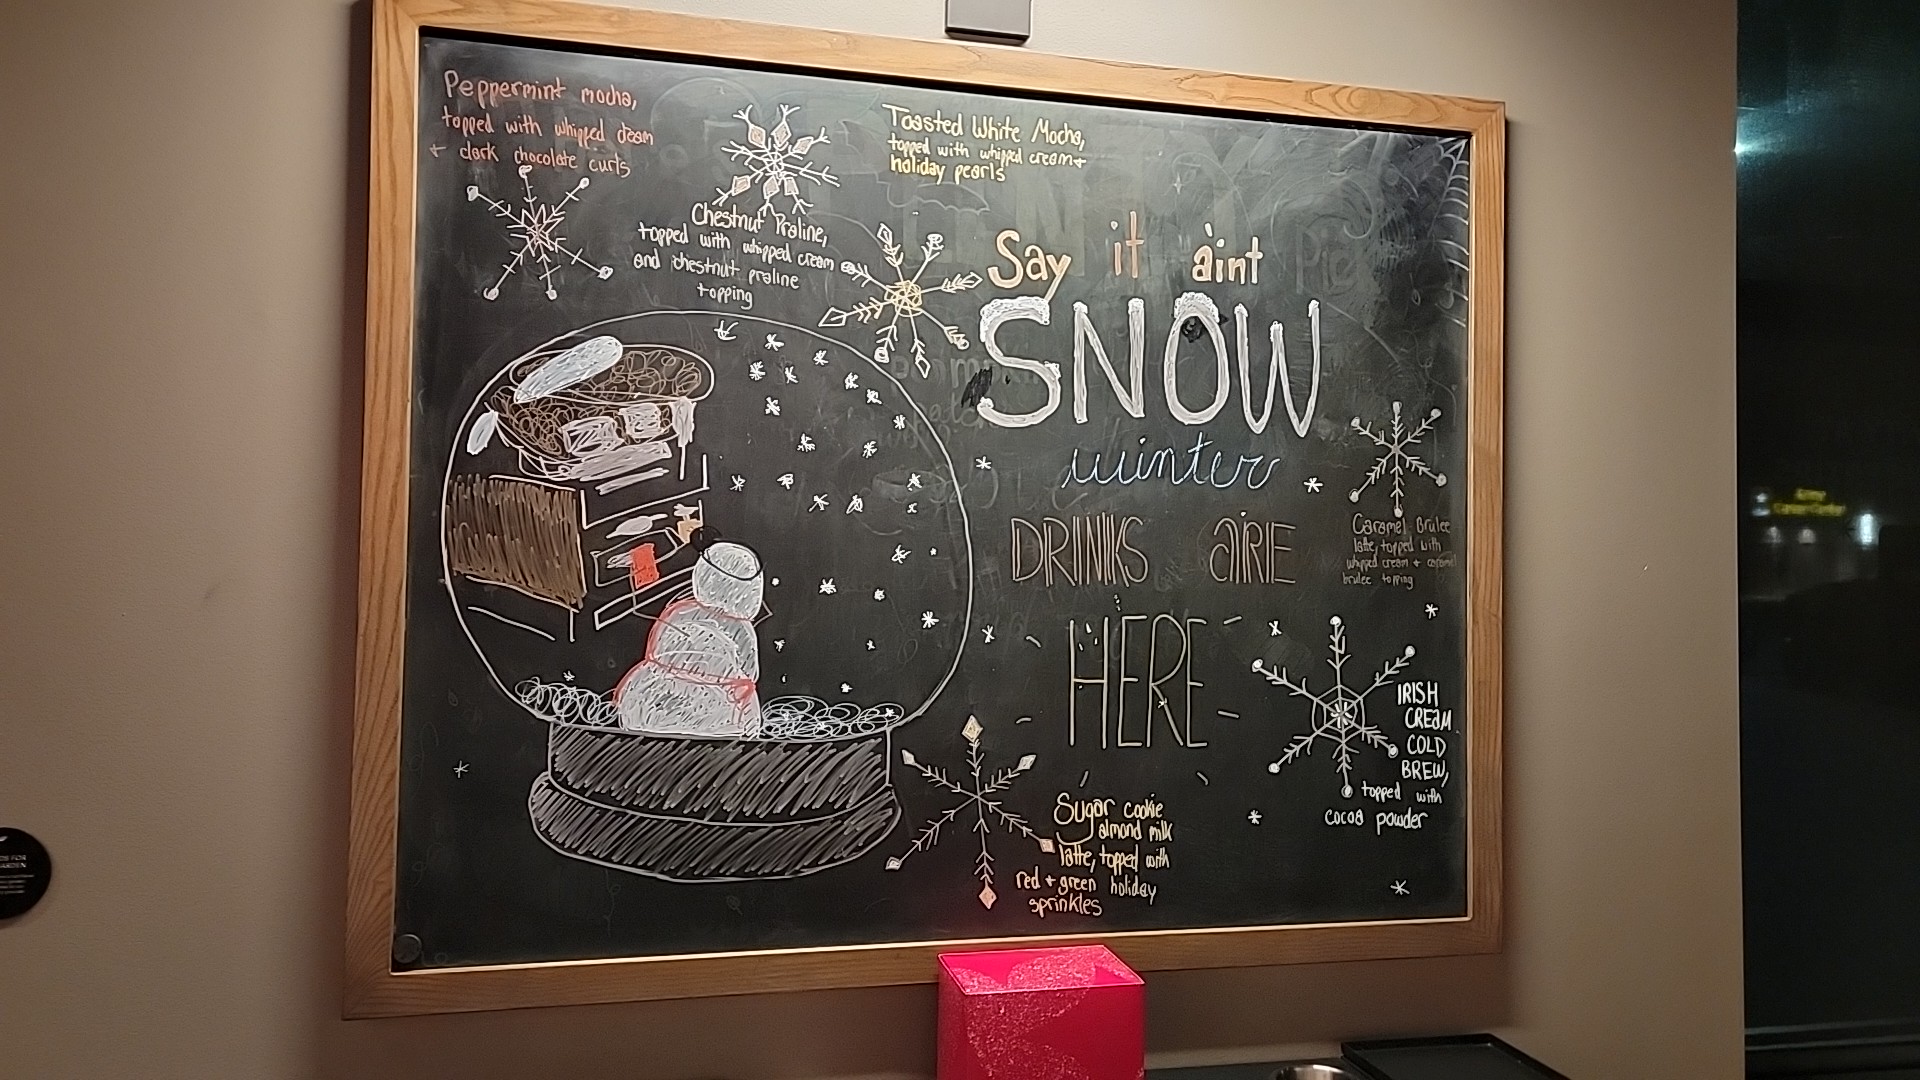 Peppermint mocha,
topped with whipped cream
+ dark chocolate curls
Chestnut Praline,
topped with whipped cream
and chestnut praline
topping
Toasted White Mocha,
topped with whipped cream +
holiday pearls
Say it aint
SNOW
winter
DRINKS aRE
HERE
Caramel Brulee
latte, topped with
whipped cream + caramel
brulee topping
IRISH
CREaM
COLD
BREW,
topped with
cocoa powder
Sugar cookie
almond milk
latte, topped with
red + green holiday
sprinkles